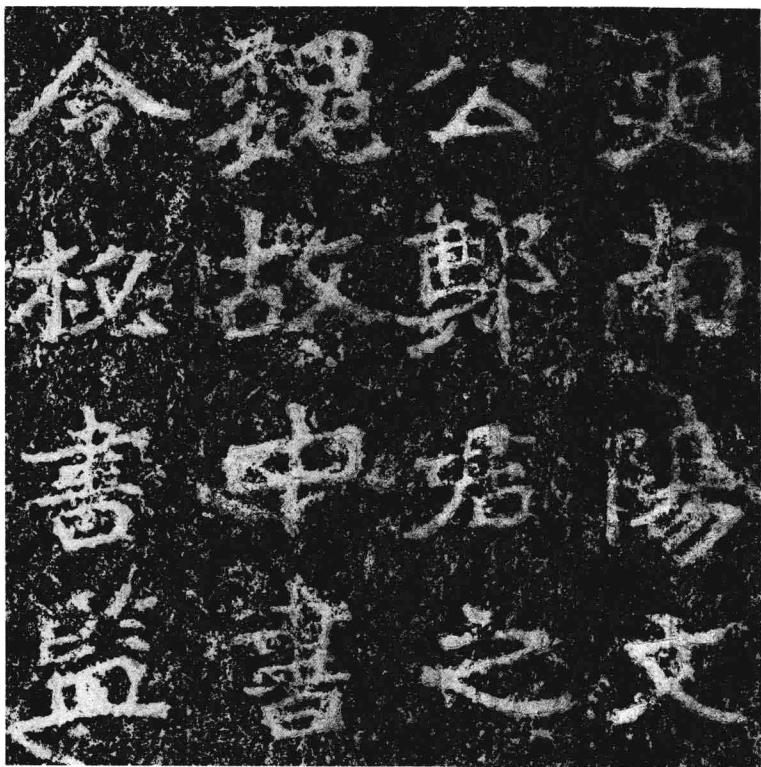 史南陽文
公鄭君之
魏故中書
令祕書監